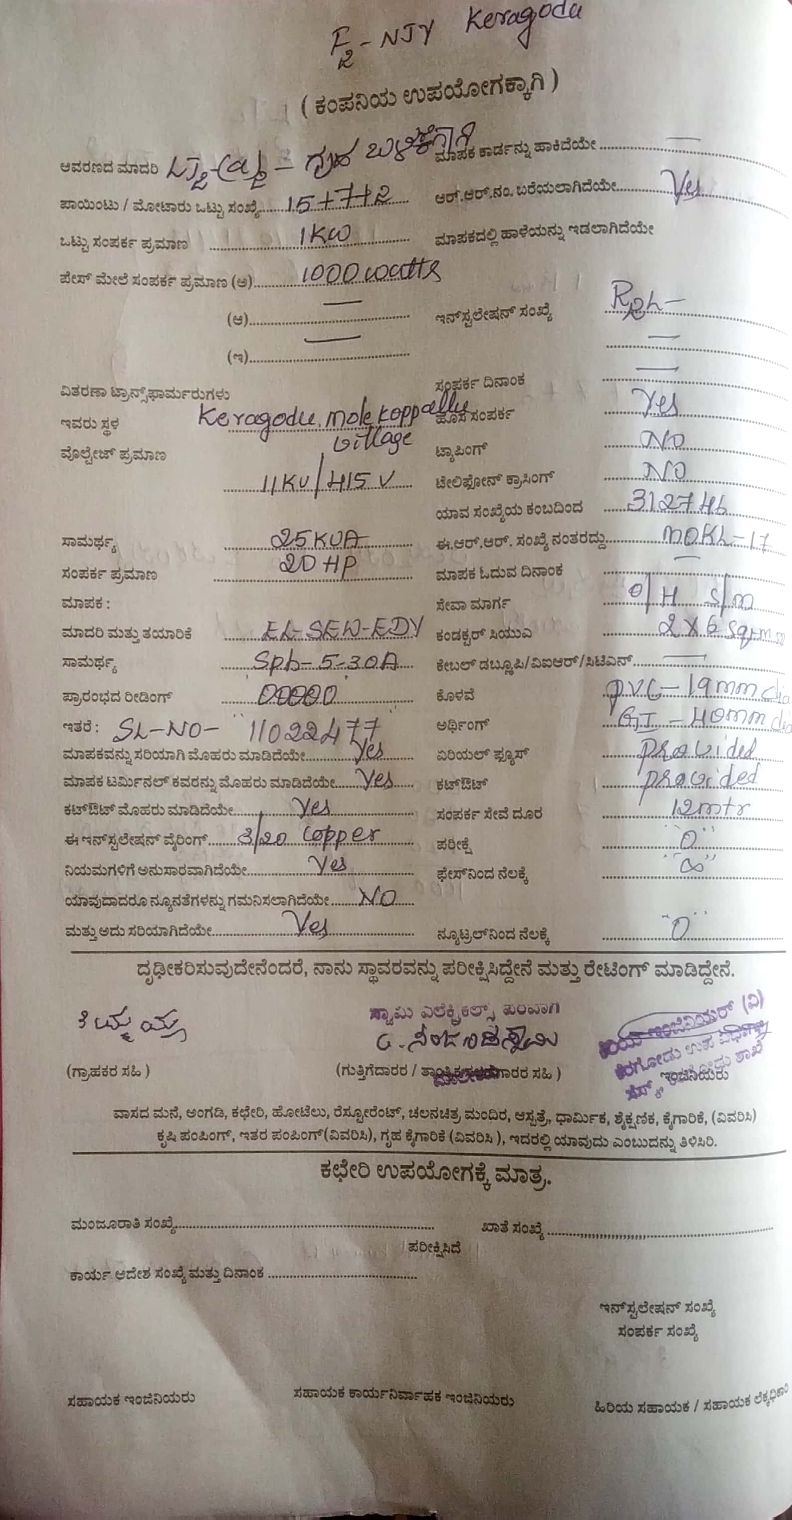 F2-NJY Keragodu
( ಕಂಪನಿಯ ಉಪಯೋಗಕ್ಕಾಗಿ )
ಆವರಣದ ಮಾದರಿ LT2-(a)2 - ಗೃಹ ಬಳಕೆಗಾಗಿ ಮಾಪಕ ಕಾರ್ಡನ್ನು ಹಾಕಿದೆಯೇ —
ಪಾಯಿಂಟು / ಮೋಟಾರು ಒಟ್ಟು ಸಂಖ್ಯೆ 15+7+2 ಆರ್.ಆರ್.ನಂ. ಬರೆಯಲಾಗಿದೆಯೇ Yes
ಒಟ್ಟು ಸಂಪರ್ಕ ಪ್ರಮಾಣ 1KW ಮಾಪಕದಲ್ಲಿ ಹಾಳೆಯನ್ನು ಇಡಲಾಗಿದೆಯೇ
ಪೇಸ್ ಮೇಲೆ ಸಂಪರ್ಕ ಪ್ರಮಾಣ (ಅ) 1000 watts
(ಆ) — ಇನ್‌ಸ್ಟಲೇಷನ್ ಸಂಖ್ಯೆ
(ಇ) — —
ವಿತರಣಾ ಟ್ರಾನ್ಸ್‌ಫಾರ್ಮರುಗಳು ಸಂಪರ್ಕ ದಿನಾಂಕ —
ಇವರು ಸ್ಥಳ Keragodu, mole koppallu village ಹೊಸ ಸಂಪರ್ಕ Yes
ವೊಲ್ಟೇಜ್ ಪ್ರಮಾಣ ಟ್ಯಾಪಿಂಗ್ NO
11KV/415 V ಟೇಲಿಫೋನ್ ಕ್ರಾಸಿಂಗ್ NO
ಯಾವ ಸಂಖ್ಯೆಯ ಕಂಬದಿಂದ
ಸಾಮರ್ಥ್ಯ 25KVA ಈ.ಆರ್.ಆರ್. ಸಂಖ್ಯೆ ನಂತರದ್ದು MOKL-17
ಸಂಪರ್ಕ ಪ್ರಮಾಣ 20 HP ಮಾಪಕ ಓದುವ ದಿನಾಂಕ —
ಮಾಪಕ : ಸೇವಾ ಮಾರ್ಗ O/H S/M
ಮಾದರಿ ಮತ್ತು ತಯಾರಿಕೆ EL-SEW-EDY ಕಂಡಕ್ಟರ್ ಸಿಯುಎ 2X6 Sqmm
ಸಾಮರ್ಥ್ಯ Sph-5-30A ಕೇಬಲ್ ಡಬ್ಲೂಪಿ/ವಿಐಆರ್/ಸಿಟಿಎಸ್ —
ಪ್ರಾರಂಭದ ರೀಡಿಂಗ್ 00000 ಕೊಳವೆ PVC-19mm dia
ಇತರೆ : SL-NO- 11022477 ಅರ್ಥಿಂಗ್ GI - 40mm dia
ಮಾಪಕವನ್ನು ಸರಿಯಾಗಿ ಮೊಹರು ಮಾಡಿದೆಯೇ Yes ಏರಿಯಲ್ ಫ್ಯೂಸ್ provided
ಮಾಪಕ ಟರ್ಮಿನಲ್ ಕವರನ್ನು ಮೊಹರು ಮಾಡಿದೆಯೇ Yes ಕಟ್‌ಔಟ್ provided
ಕಟ್‌ಔಟ್ ಮೊಹರು ಮಾಡಿದೆಯೇ Yes ಸಂಪರ್ಕ ಸೇವೆ ದೂರ 12mtr
ಈ ಇನ್‌ಸ್ಟಲೇಷನ್ ವೈರಿಂಗ್ 3/20 Copper ಪರೀಕ್ಷೆ "0"
ನಿಯಮಗಳಿಗೆ ಅನುಸಾರವಾಗಿದೆಯೇ Yes ಫೇಸ್‌ನಿಂದ ನೆಲಕ್ಕೆ "∞"
ಯಾವುದಾದರೂ ನ್ಯೂನತೆಗಳನ್ನು ಗಮನಿಸಲಾಗಿದೆಯೇ NO
ಮತ್ತು ಅದು ಸರಿಯಾಗಿದೆಯೇ Yes ನ್ಯೂಟ್ರಲ್‌ನಿಂದ ನೆಲಕ್ಕೆ "0"
ದೃಢೀಕರಿಸುವುದೇನೆಂದರೆ, ನಾನು ಸ್ಥಾವರವನ್ನು ಪರೀಕ್ಷಿಸಿದ್ದೇನೆ ಮತ್ತು ರೇಟಿಂಗ್ ಮಾಡಿದ್ದೇನೆ.
ಸ್ವಾಮಿ ಎಲೆಕ್ಟ್ರಿಕಲ್ಸ್ ಪರವಾಗಿ
(ಗ್ರಾಹಕರ ಸಹಿ) (ಗುತ್ತಿಗೆದಾರರ / ಸಹಿ ) ಇಂಜಿನಿಯರು
ವಾಸದ ಮನೆ, ಅಂಗಡಿ, ಕಛೇರಿ, ಹೋಟೆಲು, ರೆಸ್ಟೋರೆಂಟ್, ಚಲನಚಿತ್ರ ಮಂದಿರ, ಆಸ್ಪತ್ರೆ, ಧಾರ್ಮಿಕ, ಶೈಕ್ಷಣಿಕ, ಕೈಗಾರಿಕೆ, (ವಿವರಿಸಿ)
ಕೃಷಿ ಪಂಪಿಂಗ್, ಇತರ ಪಂಪಿಂಗ್(ವಿವರಿಸಿ), ಗೃಹ ಕೈಗಾರಿಕೆ (ವಿವರಿಸಿ ), ಇದರಲ್ಲಿ ಯಾವುದು ಎಂಬುದನ್ನು ತಿಳಿಸಿರಿ.
ಕಛೇರಿ ಉಪಯೋಗಕ್ಕೆ ಮಾತ್ರ.
ಮಂಜೂರಾತಿ ಸಂಖ್ಯೆ ಖಾತೆ ಸಂಖ್ಯೆ
ಪರೀಕ್ಷಿಸಿದೆ
ಕಾರ್ಯ ಆದೇಶ ಸಂಖ್ಯೆ ಮತ್ತು ದಿನಾಂಕ
ಇನ್‌ಸ್ಟಲೇಷನ್ ಸಂಖ್ಯೆ
ಸಂಪರ್ಕ ಸಂಖ್ಯೆ
ಸಹಾಯಕ ಇಂಜಿನಿಯರು ಸಹಾಯಕ ಕಾರ್ಯನಿರ್ವಾಹಕ ಇಂಜಿನಿಯರು ಹಿರಿಯ ಸಹಾಯಕ / ಸಹಾಯಕ ಲೆಕ್ಕಧಿಕಾರಿ